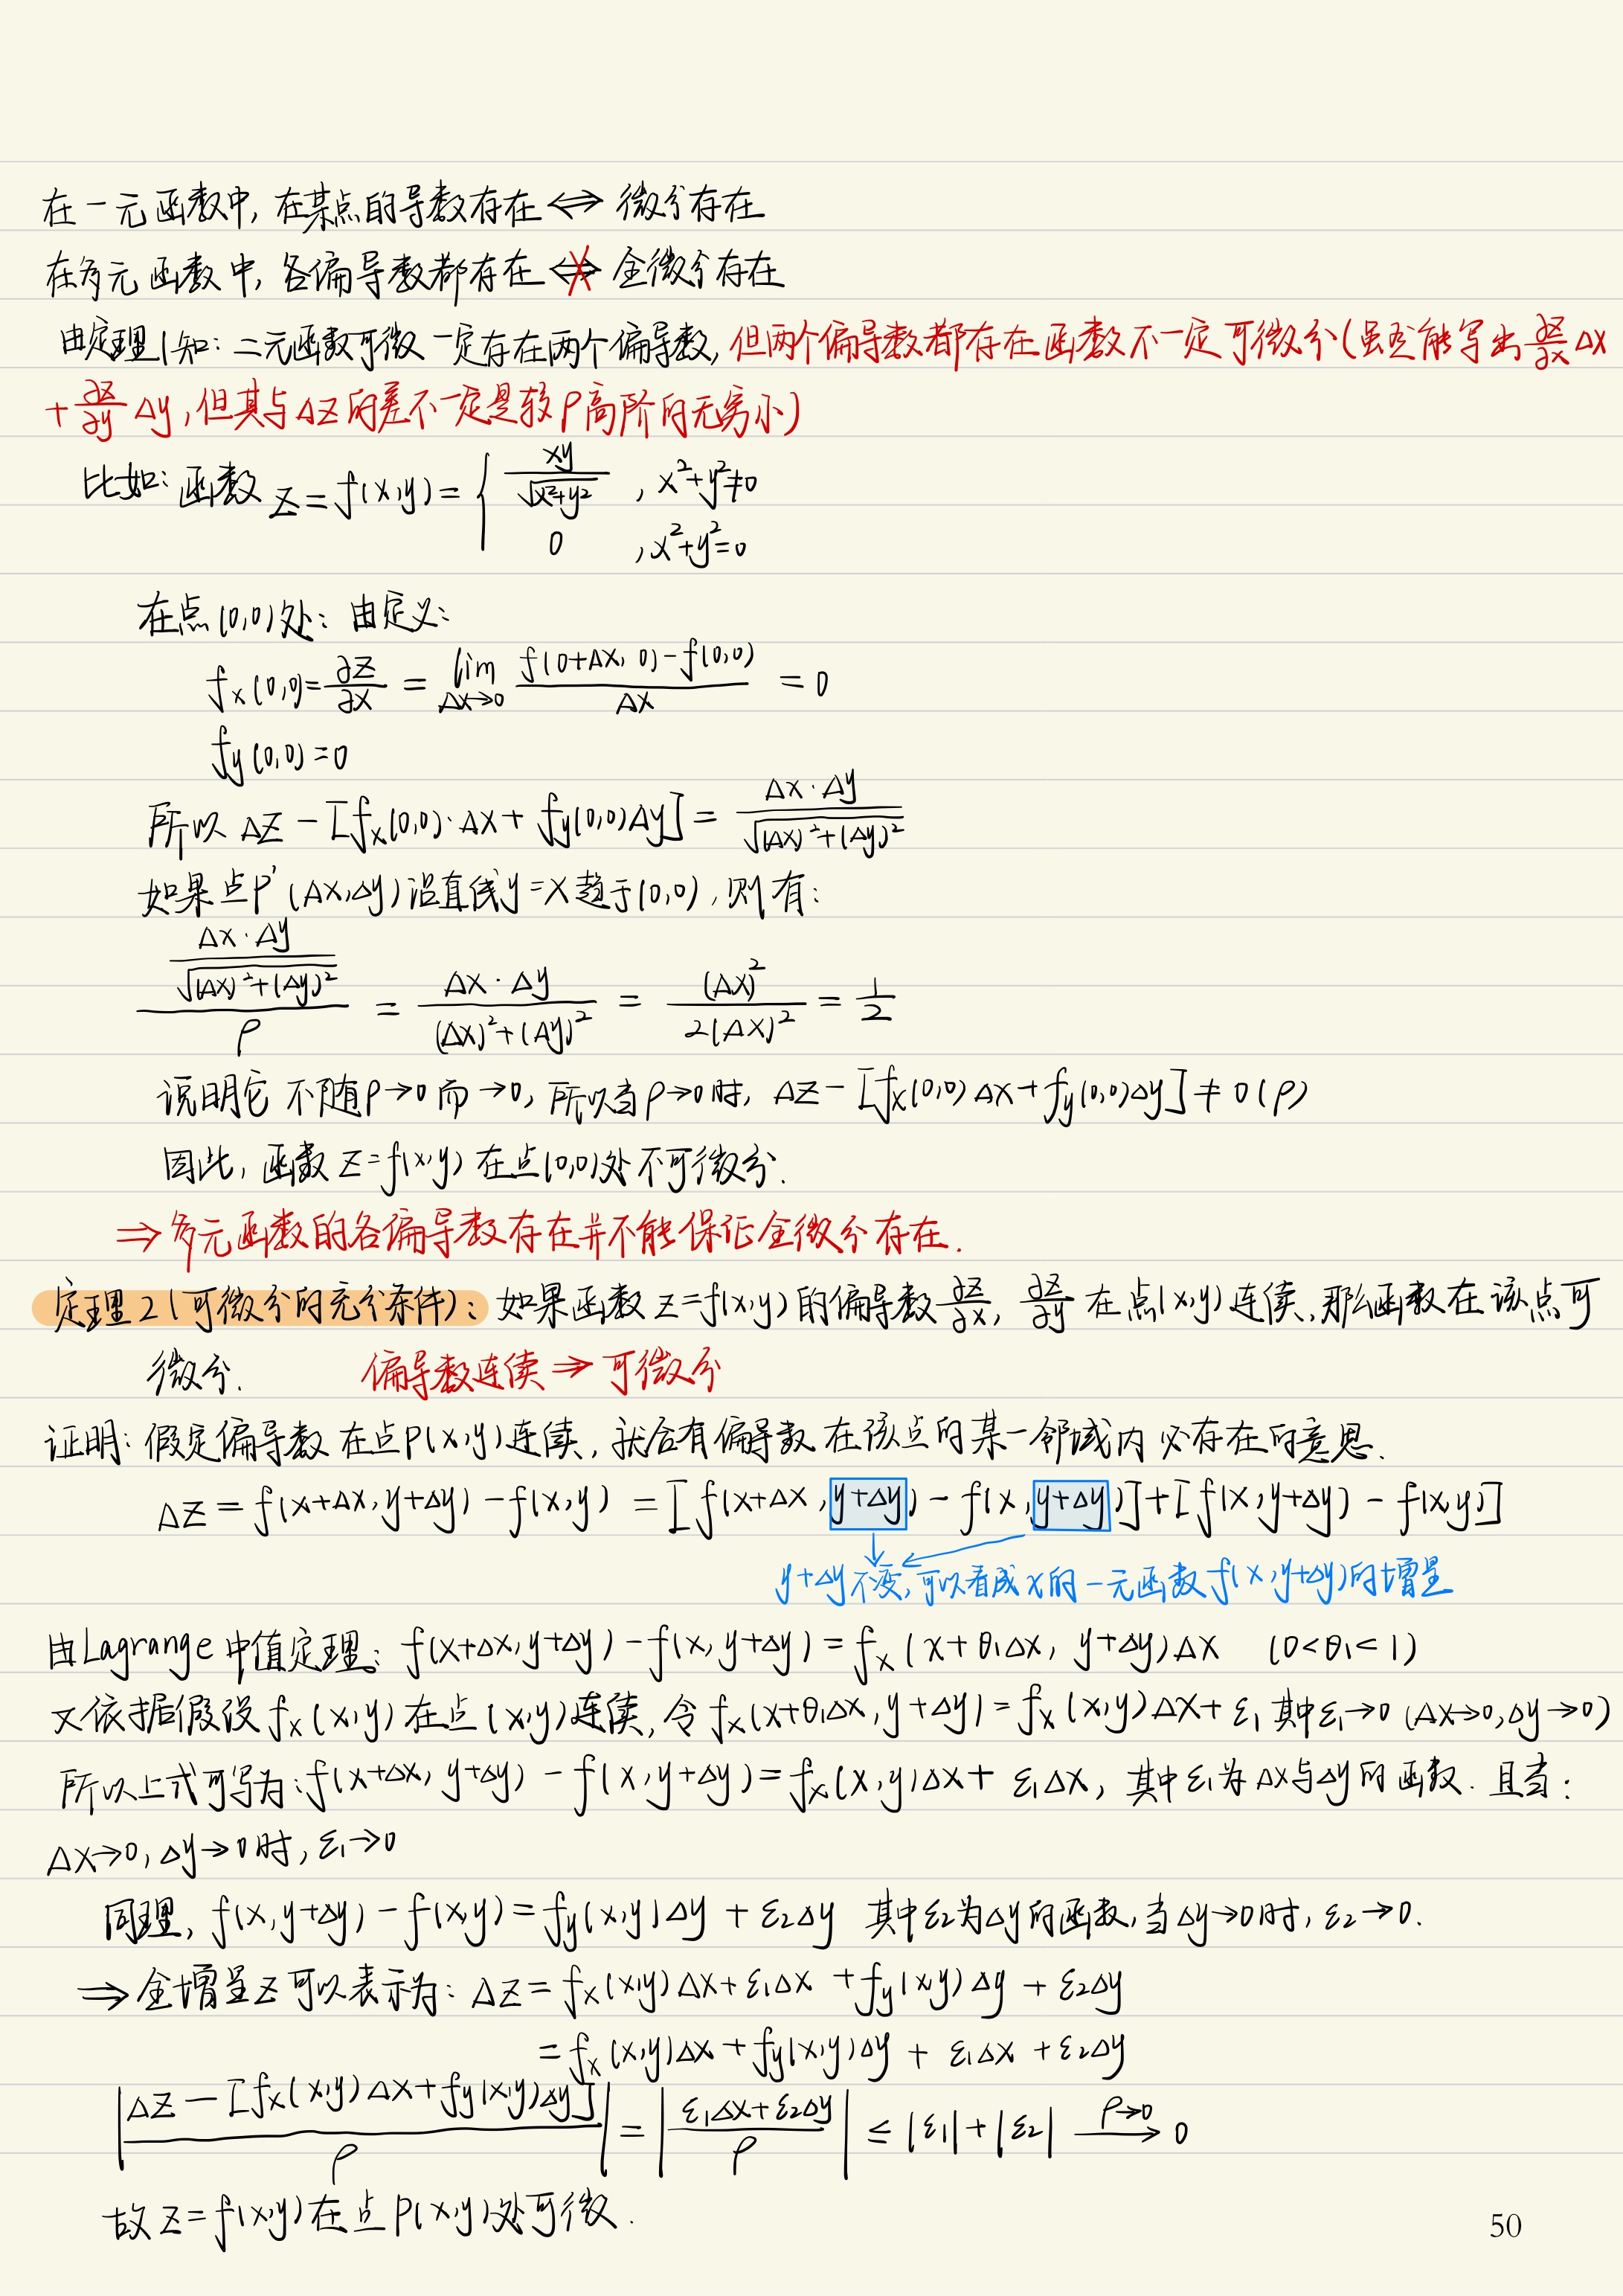 在一元函数中, 在某点的导数存在 ⟺ 微分存在
在多元函数中, 各偏导数都存在 ⇎ 全微分存在
由定理1知: 二元函数可微一定存在两个偏导数, 但两个偏导数都存在函数不一定可微分(虽然能写出 ∂z/∂x Δx
+ ∂z/∂y Δy, 但其与Δz的差不一定是较ρ高阶的无穷小)
比如: 函数 z = f(x,y) = { xy/√(x²+y²) , x²+y²≠0
0 , x²+y²=0
在点(0,0)处: 由定义:
fx(0,0) = ∂z/∂x = lim Δx→0 [f(0+Δx, 0) - f(0,0)]/Δx = 0
fy(0,0) = 0
所以 Δz - [fx(0,0)·Δx + fy(0,0)Δy] = Δx·Δy/√((Δx)²+(Δy)²)
如果点P'(Δx,Δy)沿直线y=x趋于(0,0), 则有:
(Δx·Δy/√((Δx)²+(Δy)²))/ρ = Δx·Δy/((Δx)²+(Δy)²) = (Δx)²/2(Δx)² = 1/2
说明它不随ρ→0而→0, 所以当ρ→0时, Δz - [fx(0,0)Δx + fy(0,0)Δy] ≠ o(ρ)
因此, 函数 z=f(x,y) 在点(0,0)处不可微分.
⇒ 多元函数的各偏导数存在并不能保证全微分存在.
定理2(可微分的充分条件): 如果函数 z=f(x,y) 的偏导数 ∂z/∂x, ∂z/∂y 在点(x,y)连续, 那么函数在该点可
微分. 偏导数连续 ⇒ 可微分
证明: 假定偏导数在点P(x,y)连续, 就含有偏导数在该点的某一邻域内必存在的意思.
Δz = f(x+Δx, y+Δy) - f(x,y) = [f(x+Δx, y+Δy) - f(x, y+Δy)] + [f(x, y+Δy) - f(x,y)]
y+Δy不变, 可以看成x的一元函数f(x, y+Δy)的增量
由Lagrange中值定理: f(x+Δx, y+Δy) - f(x, y+Δy) = fx(x+θ₁Δx, y+Δy)Δx (0<θ₁<1)
又依据假设 fx(x,y) 在点(x,y)连续, 令 fx(x+θ₁Δx, y+Δy) = fx(x,y)Δx + ε₁ 其中ε₁→0 (Δx→0, Δy→0)
所以上式可写为: f(x+Δx, y+Δy) - f(x, y+Δy) = fx(x,y)Δx + ε₁Δx, 其中ε₁为Δx与Δy的函数. 且当:
Δx→0, Δy→0时, ε₁→0
同理, f(x, y+Δy) - f(x,y) = fy(x,y)Δy + ε₂Δy 其中ε₂为Δy的函数, 当Δy→0时, ε₂→0.
⇒ 全增量z可以表示为: Δz = fx(x,y)Δx + ε₁Δx + fy(x,y)Δy + ε₂Δy
= fx(x,y)Δx + fy(x,y)Δy + ε₁Δx + ε₂Δy
|(Δz - [fx(x,y)Δx + fy(x,y)Δy])/ρ| = |(ε₁Δx + ε₂Δy)/ρ| ≤ |ε₁| + |ε₂| ρ→0→ 0
故 z=f(x,y) 在点P(x,y)处可微.
50